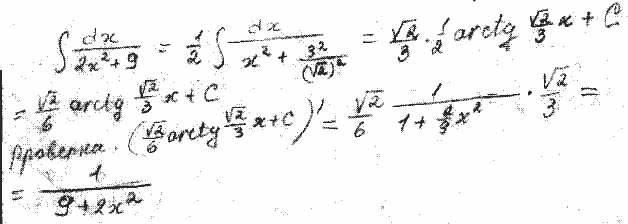 ∫ dx/(2x²+9) = 1/2 ∫ dx/(x² + 3²/(√2)²) = √2/3 · 1/2 arctg √2/3 x + C
= √2/6 arctg √2/3 x + C
Проверка. (√2/6 arctg √2/3 x + C)' = √2/6 · 1/(1 + 2/9 x²) · √2/3 =
= 1/(9+2x²)